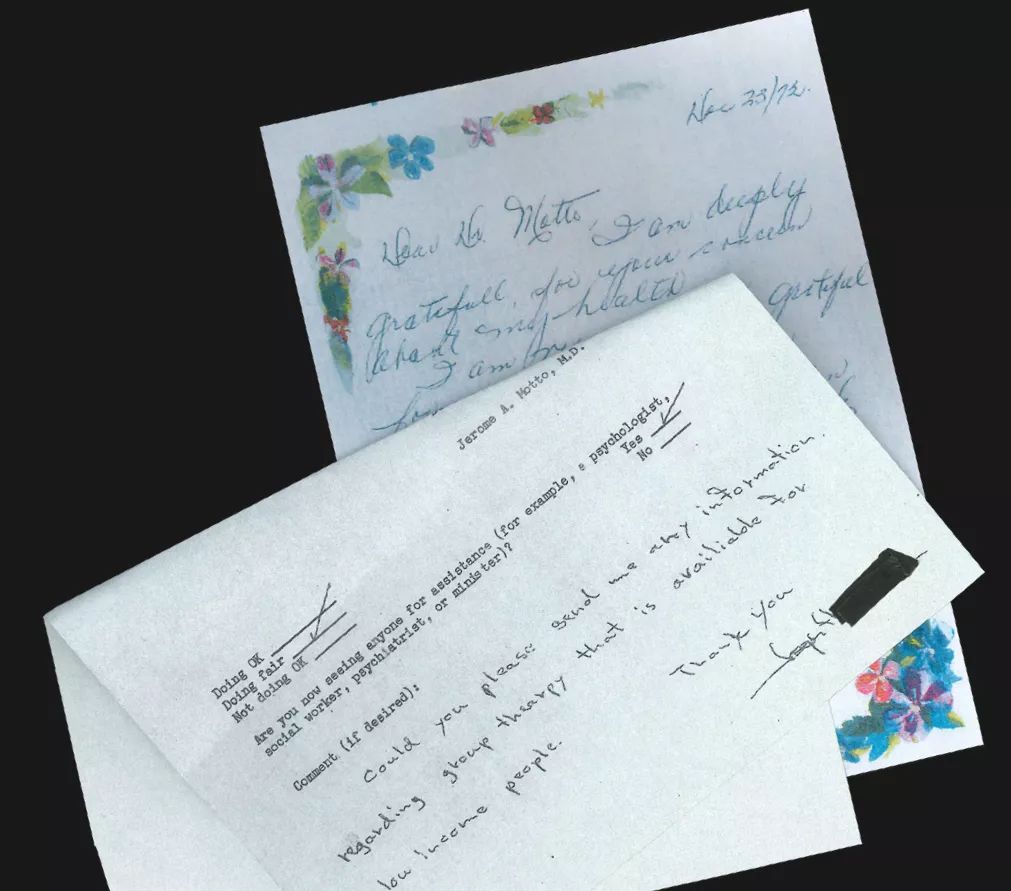 Nov 23/72.
Dear Dr. Motto, I am deeply
gratefull, for your concern
about my health grateful
I am
Jerome A. Motto, M.D.
Doing OK
Doing fair
Not doing OK
Are you now seeing anyone for assistance (for example, a psychologist,
social worker, psychiatrist, or minister)?
Yes
No
Comment (if desired):
Could you please send me any information
regarding group therapy that is available for
low income people.
Thank you